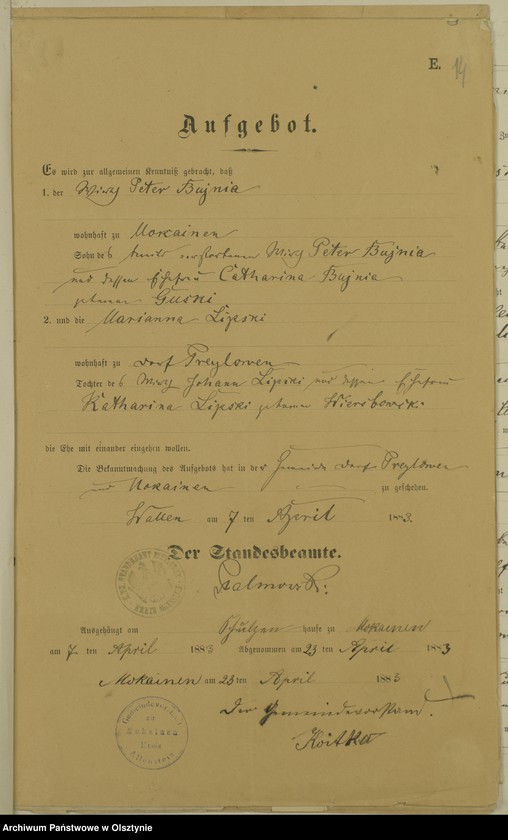 E. 14
Aufgebot.
Es wird zur allgemeinen Kenntniß gebracht, daß
1. der Wirth Peter Bujnia
wohnhaft zu Mokainen
Sohn des bereits verstorbenen Wirth Peter Bujnia
und dessen Ehefrau Catharina Bujnia
geborenen Guski
2. und die Marianna Lipski
wohnhaft zu Dorf Preylowen
Tochter des Wirth Johann Lipski und dessen Ehefrau
Katharina Lipski geborenen Wiersbowski
die Ehe mit einander eingehen wollen.
Die Bekanntmachung des Aufgebots hat in der Gemeinde Dorf Preylowen
und Mokainen zu geschehen.
Wallen am 7 ten April 1883.
Der Standesbeamte.
Ausgehängt am Schulzen hause zu Mokainen
am 7. ten April 1883 Abgenommen am 23 ten April 1883
Mokainen am 23 ten April 1883
Der Gemeindevorstand.
Koitka
Gemeindevorstand
zu
Mokainen
Kreis
Allenstein
Archiwum Państwowe w Olsztynie